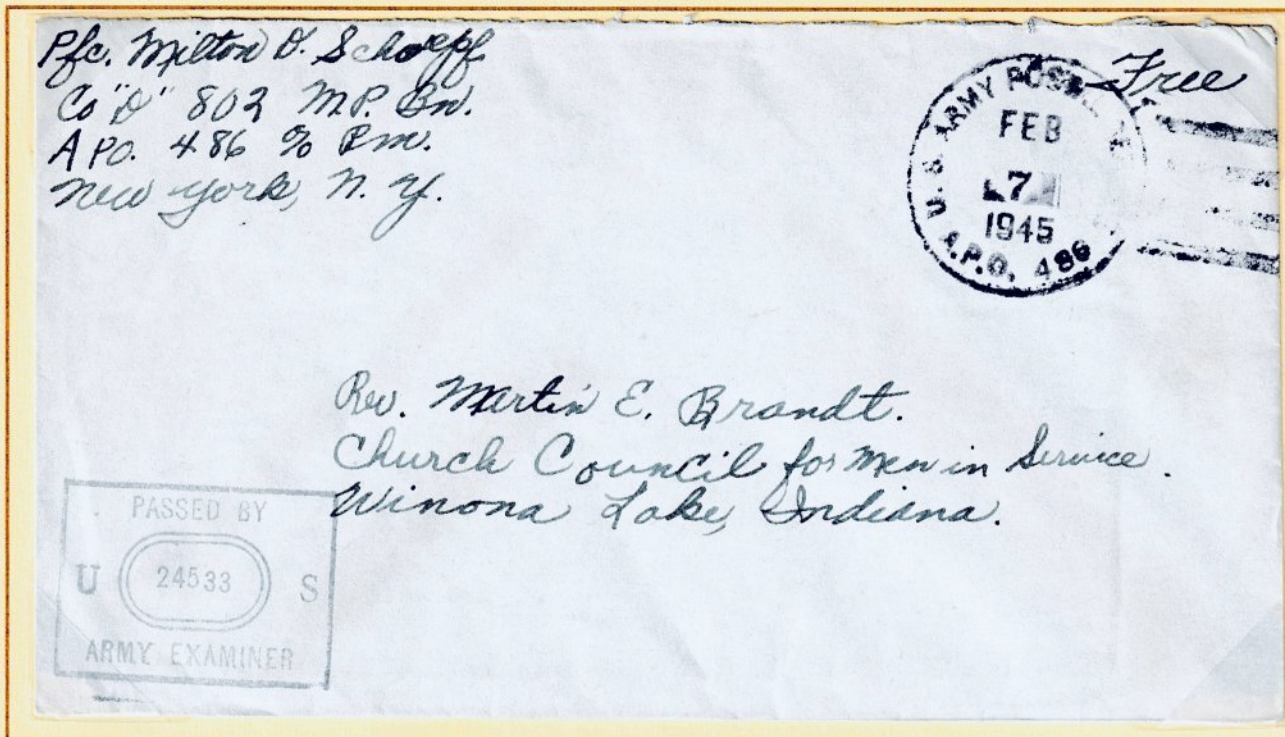 Pfc. Milton D. Schoepf
Co "D" 802 M.P. Bn.
A PO. 486 % P.m.
New York, N. Y.
Free
U. S. ARMY
FEB
7
1945
A.P.O. 486
Rev. Martin E. Brandt.
Church Council for Men in Service.
Winona Lake, Indiana.
PASSED BY
U 24533 S
ARMY EXAMINER